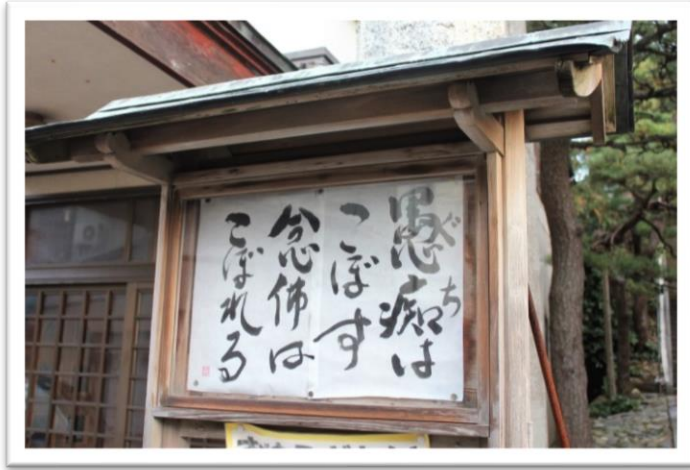 愚痴は
ぐち
こぼす
念佛は
こぼれる